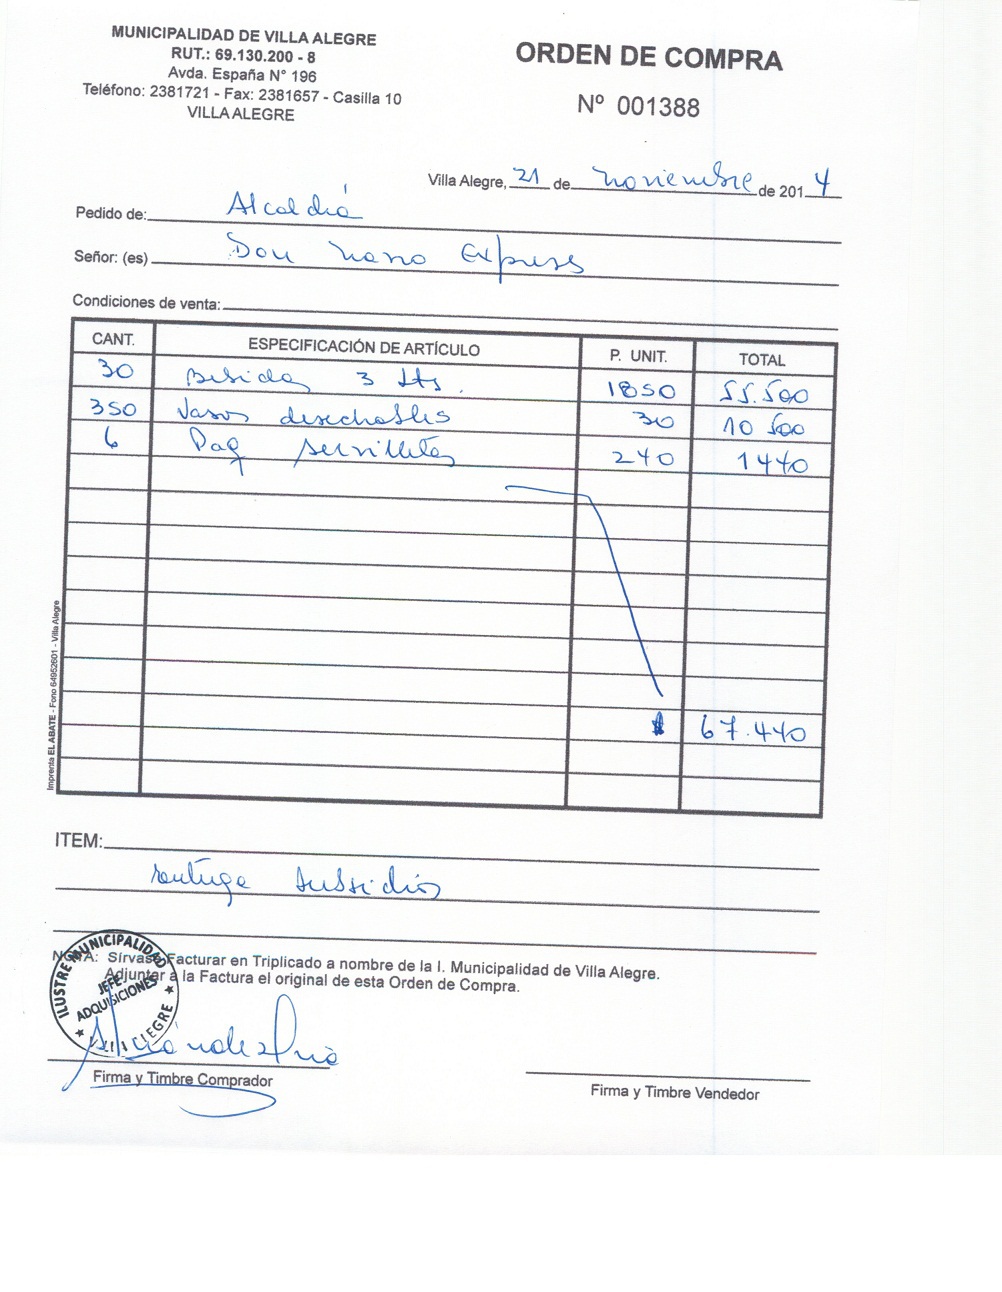 MUNICIPALIDAD DE VILLA ALEGRE
RUT.: 69.130.200 - 8
Avda. España N° 196
Teléfono: 2381721 - Fax: 2381657 - Casilla 10
VILLA ALEGRE
ORDEN DE COMPRA
Nº 001388
Villa Alegre, 21 de noviembre de 2014
Pedido de: Alcaldía
Señor: (es) Don Nano Express
Condiciones de venta:
CANT. ESPECIFICACIÓN DE ARTÍCULO P. UNIT. TOTAL
30 Bebidas 3 Lts. 1850 55.500
350 Vasos desechables 30 10 500
6 Paq servilletas 240 1440
$ 67.440
Imprenta EL ABATE - Fono 64952601 - Villa Alegre
ITEM:
subsidios
NOTA: Sírvase Facturar en Triplicado a nombre de la I. Municipalidad de Villa Alegre.
Adjuntar a la Factura el original de esta Orden de Compra.
ILUSTRE MUNICIPALIDAD
JEFE
ADQUISICIONES
VILLA ALEGRE
Firma y Timbre Comprador
Firma y Timbre Vendedor